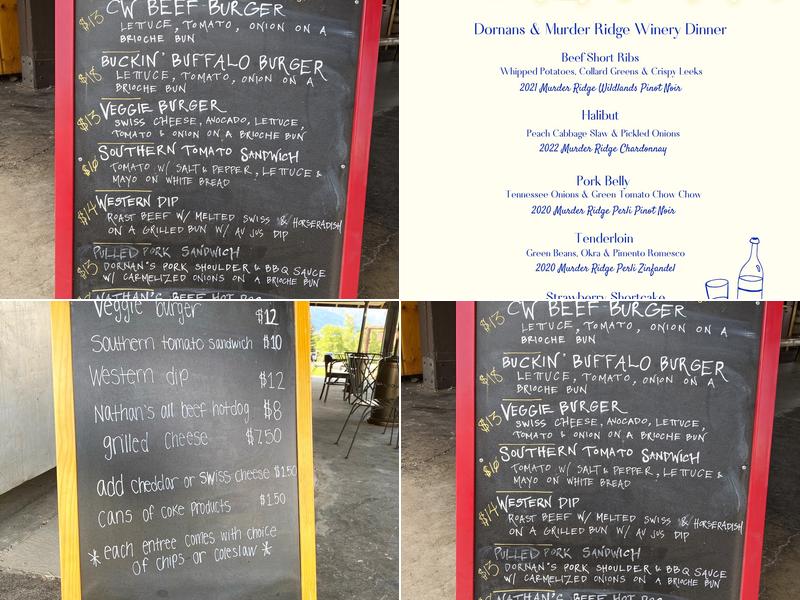 $13 CW BEEF BURGER
LETTUCE, TOMATO, ONION ON A
BRIOCHE BUN
$18 BUCKIN' BUFFALO BURGER
LETTUCE, TOMATO, ONION ON A
BRIOCHE BUN
$13 VEGGIE BURGER
SWISS CHEESE, AVOCADO, LETTUCE,
TOMATO & ONION ON A BRIOCHE BUN
SOUTHERN TOMATO SANDWICH
TOMATO W/ SALT & PEPPER, LETTUCE &
MAYO ON WHITE BREAD
$14 WESTERN DIP
ROAST BEEF W/ MELTED SWISS & HORSERADISH
ON A GRILLED BUN W/ AU JUS DIP
PULLED PORK SANDWICH
$13 DORNAN'S PORK SHOULDER & BBQ SAUCE
W/ CARMELIZED ONIONS ON A BRIOCHE BUN
NATHAN'S BEEF HOT DOG
Dornans & Murder Ridge Winery Dinner
Beef Short Ribs
Whipped Potatoes, Collard Greens & Crispy Leeks
2021 Murder Ridge Wildlands Pinot Noir
Halibut
Peach Cabbage Slaw & Pickled Onions
2022 Murder Ridge Chardonnay
Pork Belly
Tennessee Onions & Green Tomato Chow Chow
2020 Murder Ridge Perli Pinot Noir
Tenderloin
Green Beans, Okra & Pimento Romesco
2020 Murder Ridge Perli Zinfandel
Strawberry Shortcake
Veggie burger $12
Southern tomato sandwich $10
Western dip $12
Nathan's all beef hotdog $8
grilled cheese $7.50
add cheddar or swiss cheese $1.50
cans of coke products $1.50
*each entree comes with choice
of chips or coleslaw*
$13 CW BEEF BURGER
LETTUCE, TOMATO, ONION ON A
BRIOCHE BUN
$18 BUCKIN' BUFFALO BURGER
LETTUCE, TOMATO, ONION ON A
BRIOCHE BUN
$13 VEGGIE BURGER
SWISS CHEESE, AVOCADO, LETTUCE,
TOMATO & ONION ON A BRIOCHE BUN
SOUTHERN TOMATO SANDWICH
TOMATO W/ SALT & PEPPER, LETTUCE &
MAYO ON WHITE BREAD
$14 WESTERN DIP
ROAST BEEF W/ MELTED SWISS & HORSERADISH
ON A GRILLED BUN W/ AU JUS DIP
PULLED PORK SANDWICH
$13 DORNAN'S PORK SHOULDER & BBQ SAUCE
W/ CARMELIZED ONIONS ON A BRIOCHE BUN
NATHAN'S BEEF HOT DOG